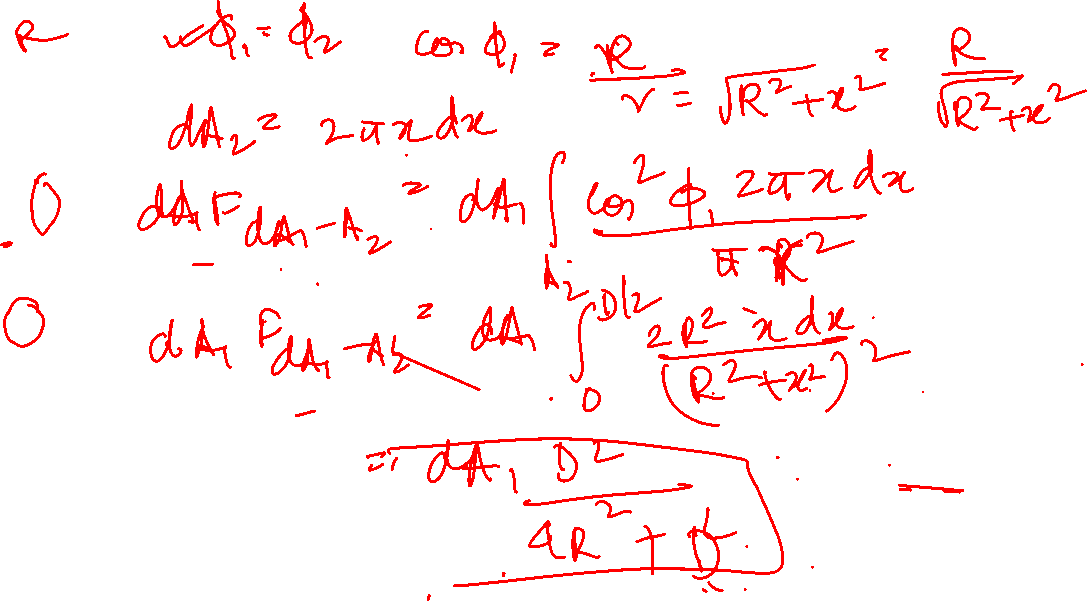 R φ₁ = φ₂ cos φ₁ = R / r = √R² + x² = R / √R² + x²
dA₂ = 2πx dx
0 dA₁ F dA₁-A₂ = dA₁ ∫A₂ cos² φ₁ 2πx dx / π R²
0 dA₁ F dA₁-A₂ = dA₁ ∫₀^D/2 2R² x dx / (R² + x²)²
= dA₁ D² / 4R² + D²